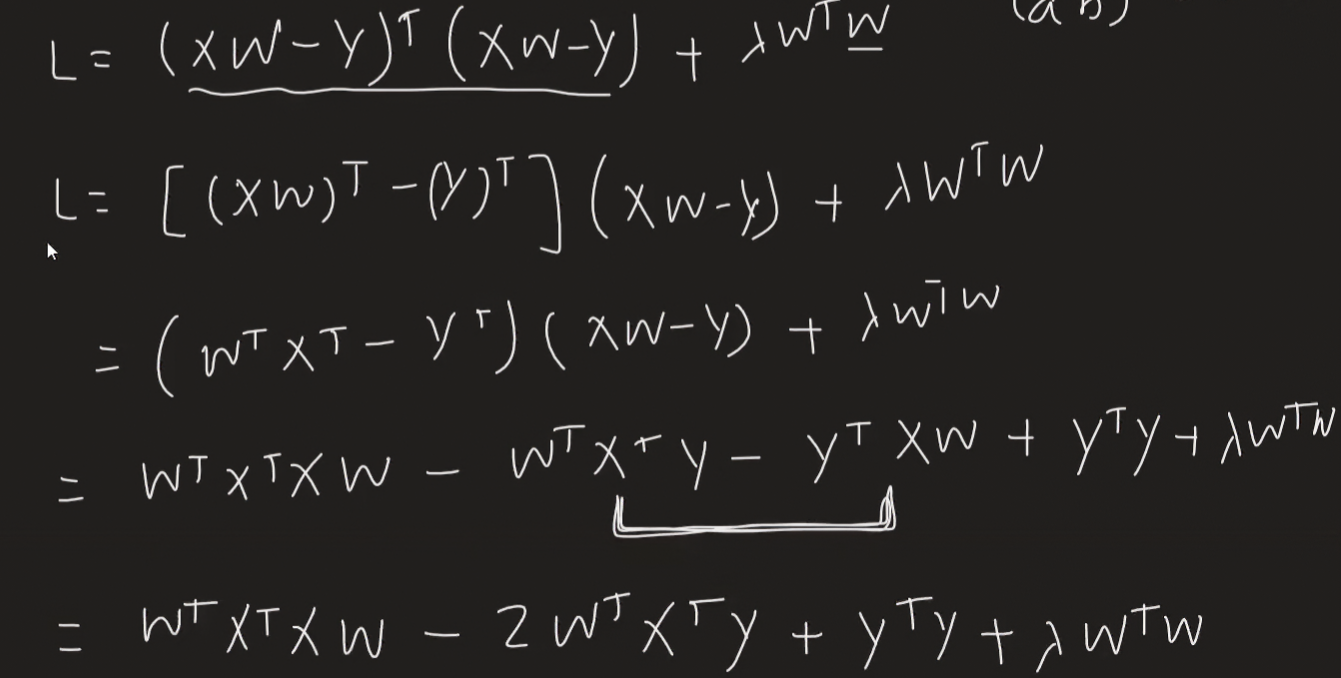 L = (XW-Y)ᵀ (XW-Y) + λWᵀW (ab)
L = [(XW)ᵀ - (Y)ᵀ] (XW-Y) + λWᵀW
= (WᵀXᵀ - Yᵀ) (XW-Y) + λWᵀW
= WᵀXᵀXW - WᵀXᵀy - yᵀXW + yᵀy + λWᵀW
= WᵀXᵀXW - 2WᵀXᵀy + yᵀy + λWᵀW